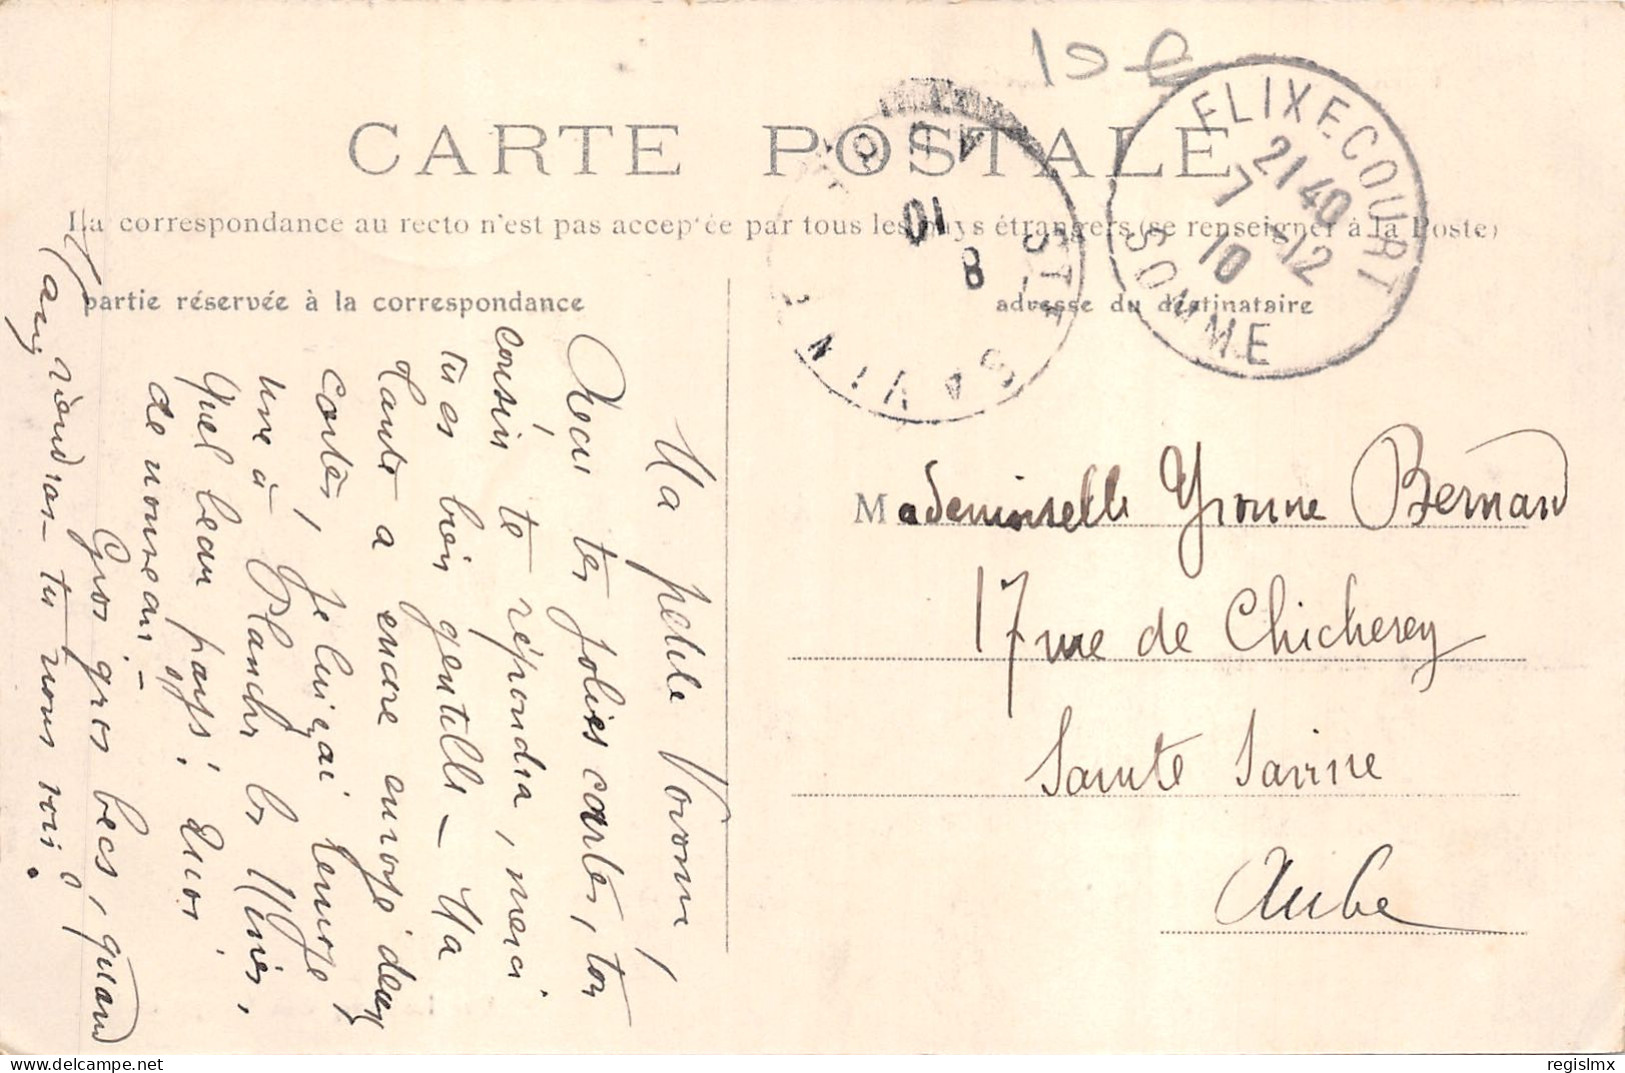 CARTE POSTALE
La correspondance au recto n'est pas acceptée par tous les pays étrangers (se renseigner à la Poste)
partie réservée à la correspondance
adresse du destinataire
FLIXECOURT
21 40
7 -12
10
SOMME
STE SAVINE
8
10
Mademoiselle Yvonne Bernard
17 rue de Chicherey
Sainte Savine
Aube
Ma petite Vovonne,
Reçu tes jolies cartes, ton
cousin te répondra, merci
tu es bien gentille - Ma
tante a encore envoyé deux
cartes, je lui ai renvoyé
une à Plancher les Mines,
quel beau pays!
de nouveau! -
Gros gros becs, quand
viendras-tu nous voir?
regislmx